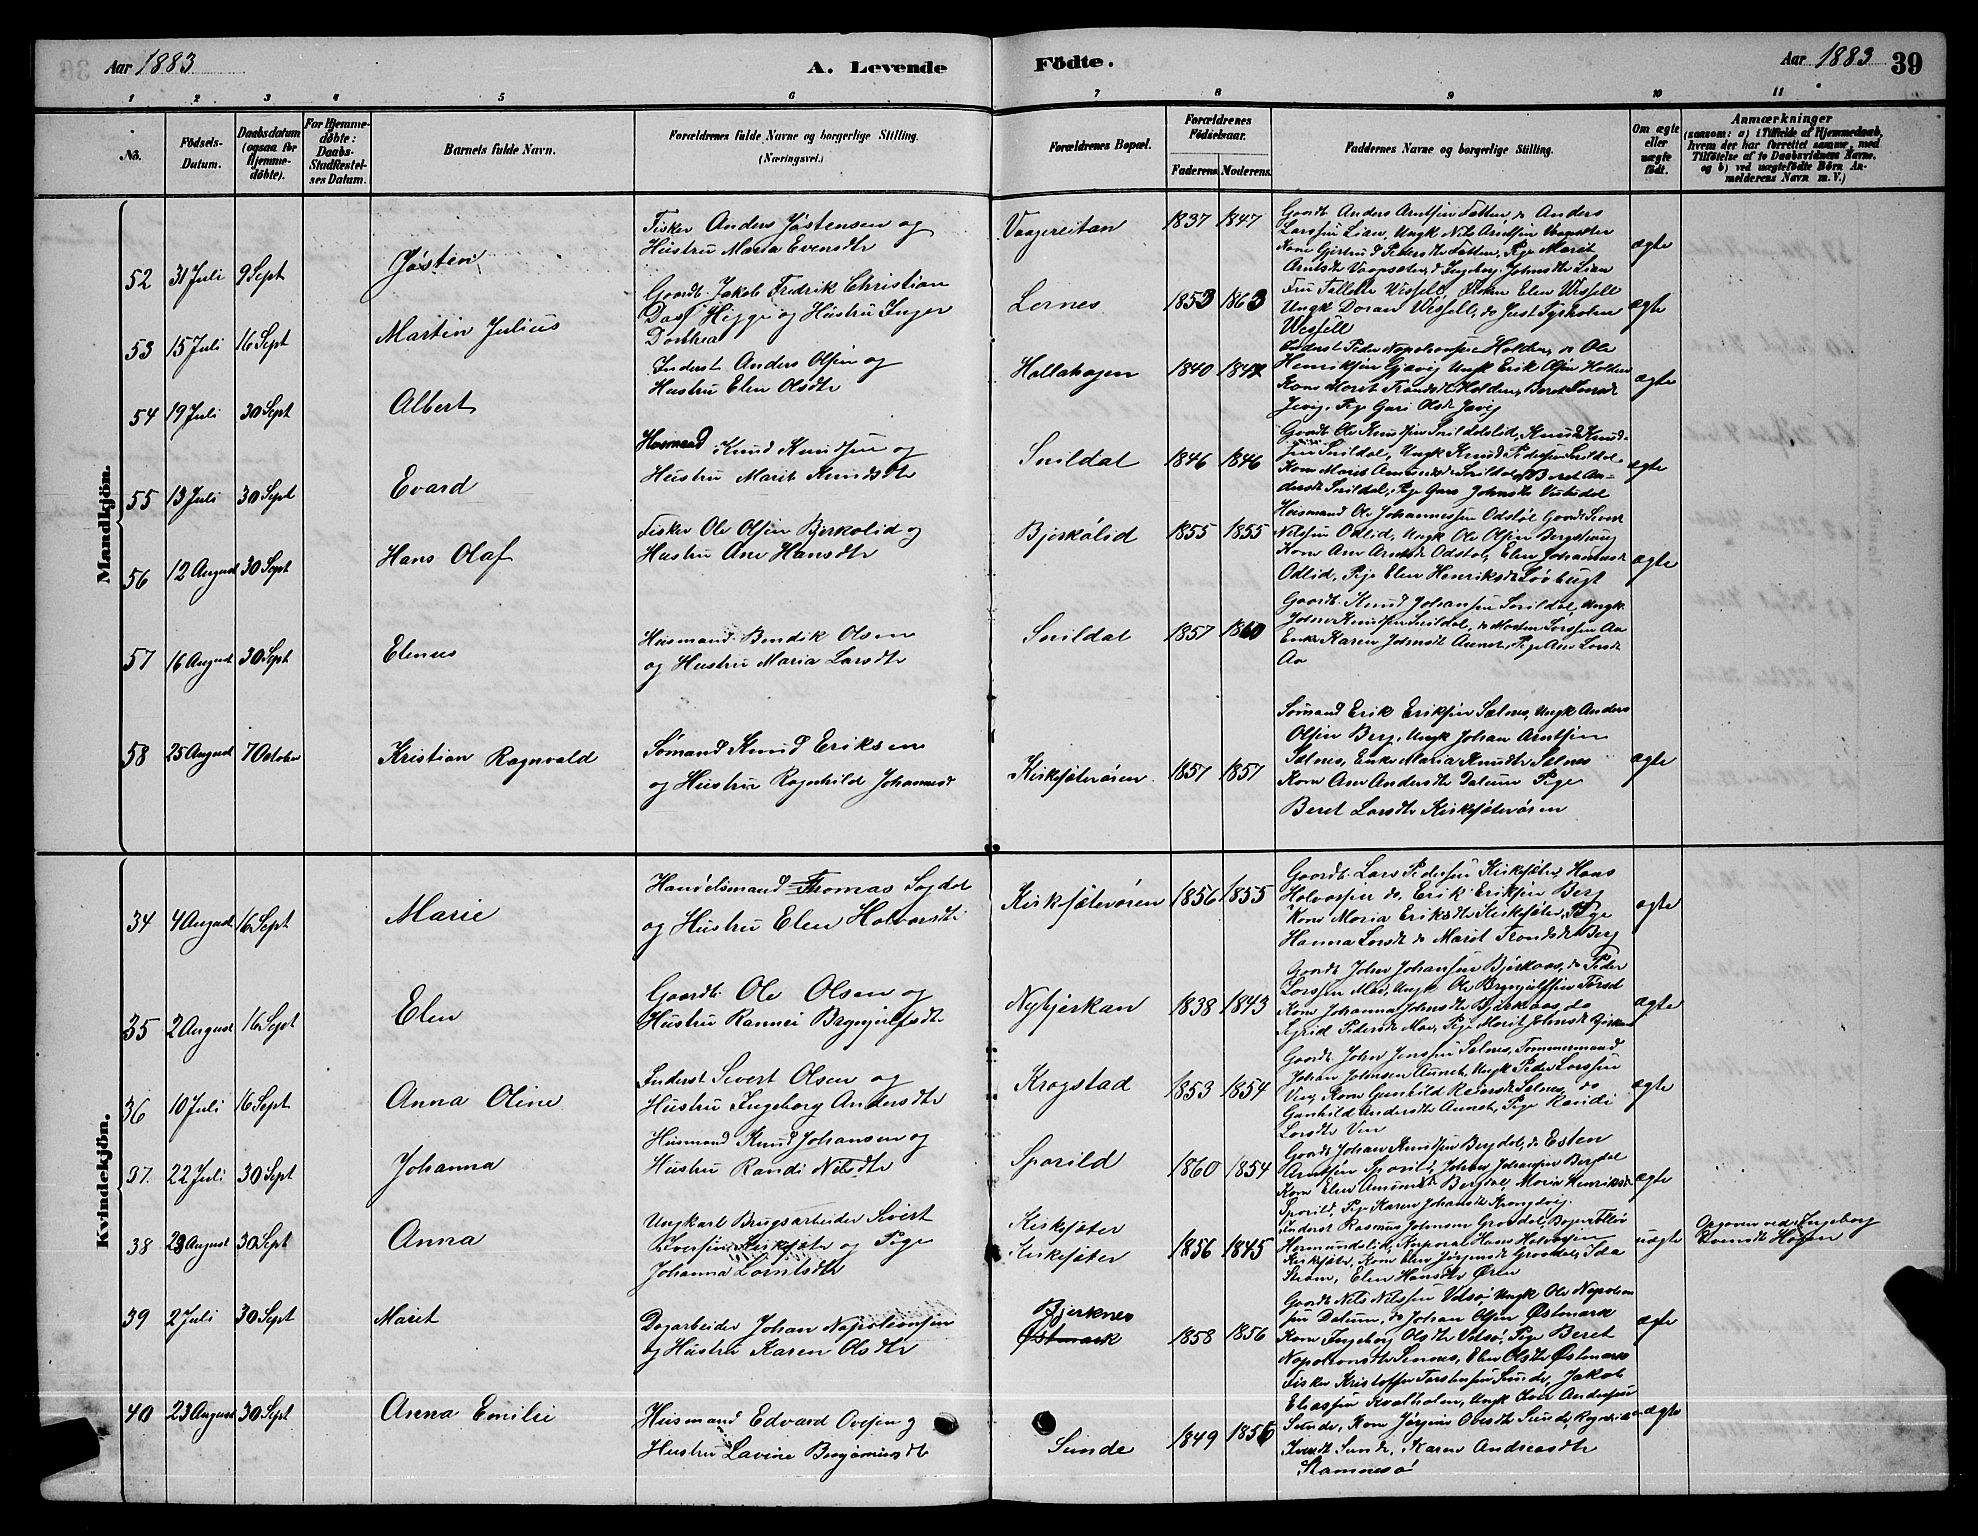 Aar 1883
A. Levende
Födte.
Aar 1883
39
1 2 3 4 5 6 7 8 9 10 11
No.
Födsels-
Datum.
Daabsdatum
(ogsaa for
Hjemme-
döbte).
For Hjemme-
döbte:
Daabs-
Stadfæstel-
ses Datum.
Barnets fulde Navn.
Forældrenes fulde Navne og borgerlige Stilling.
(Næringsvei.)
Forældrenes Bopæl.
Forældrenes
Födselsaar.
Faderens. Moderens.
Faddernes Navne og borgerlige Stilling.
Om ægte
eller
uægte
födt.
Anmærkninger
(saasom: a) i Tilfælde af Hjemmedaab,
hvem der har forrettet samme, med
Tilföielse af to Daabsvidners Navne.
og b) ved uægtefödte Börn An-
melderens Navn m. V.)
Mandkjön.
52 31 Juli 9 Sept
Jøsten
Fisker Anders Jøstensen og
Hustru Marta Evensdtr
Vaagereitan 1837 1847
Gaardb Anders Arntsen Fætten, do Anders
Larssen Lian, Ungk Nils Arntsen
Kone Gjertrud Pedersdtr Fætten, Pige Marit
Arntsdtr Ingeborg Johnsdtr Lian
ægte
53 15 Juli 16 Sept
Martin Julius
Gaardb. Jakob Fredrik Christian
Dass Higge og Hustru Inger
Dorthea
Lernes 1853 1863
Fru Wessell, Elen Wessell
Ungk Doran Wessell, do Just Tyrholm
Wessell
ægte
54 19 Juli 30 Sept
Albert
Inderst Anders Olsen og
Hustru Elen Olsdtr
Hollahagen 1840 1847
Inderst Peder Napoleonsen Holden, do Ole
Henriksen Gjævig Ungk Erik Olsen Holden
Kone Marit Trondsdtr Holden, Beret
Pige Guri Olsdtr
ægte
55 13 Juli 30 Sept
Evard
Husmand Knud Knudsen og
Hustru Marit Knudsdtr
Snildal 1846 1846
Gaardb Ole Knudsen Snildalslid, Knud Knud-
sen Snildal, Ungk Knud Pedersen Snildal
Kone Marit Amundsdtr Snildal, Beret An-
dersdt Snildal, Pige Guru Johnsdtr
ægte
56 12 August 30 Sept
Hans Olaf
Fisker Ole Olsen Bjerkolid og
Hustru Ane Hansdtr
Bjerkölid 1855 1855
Husmand Ole Johannessen Odstøl Gaardb
Nilssen Odlid, Ungk Ole Olsen
Kone Ane Odstøl, Elen Johannesdt
Odlid, Pige Elen Henriksdtr Lövbugt
ægte
57 16 August 30 Sept
Elenus
Husmand Bendik Olsen
og Hustru Maria Larsdtr
Snildal 1857 1860
Gaardb. Knud Johansen Snildal, Ungk
John Knudsen Snildal, do Morten Larssen Aa
Enke Karen Johnsdtr Aunet, Pige Ane Larsdtr
Aa
58 25 August 7 October
Kristian Ragnvald
Sømand Knud Eriksen
og Hustru Ragnhild Johannesdt
Kirksæterören 1857 1857
Sømand Erik Eriksen Salnes, Ungk Anders
Olsen Berg, Ungk Johan Arntsen
Salnes, Enke Maria Knudsdtr Salnes
Kone Ane Andersdtr Dalum Pige
Beret Larsdtr Kirksæterören
ægte
Kvindekjön.
34 4 August 16 Sept
Marie
Handelsmand Thomas Sogdal
og Hustru Elen Halvorsdtr
Kirksæterören 1856 1855
Gaardb. Lars Pedersen Kirksæter, Hans
Halvorsen do, Erik Eriksen Berg
Kone Maria Eriksdtr Kirksæter, Pige
Hanna Larsdt do Marit Trondsdtr Berg
ægte
35 2 August 16 Sept
Elen
Gaardb. Ole Olsen og
Hustru Rannei Brynjulfsdtr
Nybjerkan 1838 1843
Gaardb John Johansen Bjerkaas, do Peder
Larssen Moe, Ungk Ole Brynjulfsen
Kone Johanna Johnsdtr Bjerkaas, do
Sigrid Pedersdtr Moe, Pige Marit Johnsdt
ægte
36 10 Juli 16 Sept
Anna Oline
Inderst Sivert Olsen og
Hustru Ingeborg Andersdtr
Krogstad 1853 1854
Gaardb. John Jenssen Salnes, Tømmermand
Johan Johnsen Aunet, Ungk Peder Larssen
Ven, Kone Gunhild Salnes, do
Gunhild Andersdtr Aunet, Pige Randi
Larsdtr Ven
ægte
37. 22 Juli 30 Sept
Johanna
Husmand Knud Johansen og
Hustru Randi Nilsdtr
Sporild 1860 1854
Gaardb Johan Knudsen Bergdal, do Esten
Arntsen Sporild, Johan Johansen Bergdal
Kone Elen Amundsdtr Bergdal, Maria Henriksdt
Sporild, Pige Karen Johansdtr
ægte
38 23 August 30 Sept
Anna
Ungkarl Brugsarbeider Sivert
Iversen Kirksæter og Pige
Johanna Lorntsdtr
Kirksæter
Kirksæter 1856 1845
Inderst Rasmus Johnsen Grovdal,
Hermundslid, Korporal Hans Halvorsen
Kirksæter, Kone Elen Jörgensdt Grovdal, Ida
Strøm, Elen Hansdtr Øren
uægte
Opgaven ved Ingeborg
39 2 Juli 30 Sept
Marit
Dagarbeider Johan Napoleonsen
og Hustru Karen Olsdtr
Bjerknes
Østmark 1858 1856
Gaardb Nils Nilssen Vitsø, Ungk Ole Napoleon
sen Dalum, do Johan Olsen Østmark
Kone Ingeborg Olsdtr Vitsø, Pige Beret
Napoleonsdtr Elen Olsdtr Østmark
ægte
40 23 August 30 Sept
Anna Emilie
Husmand Edvard Ovesen og
Hustru Lavine Benjaminsdt
Sunde 1849 1856
Fisker Kristoffer Torstensen Sunde, Jakob
Eliassen Kvalholm, Ungk Iver Andersen
Sunde, Kone Jørgine Olsdtr Sunde,
Sunde, Karen Andreasdtr
Stamnesø
ægte